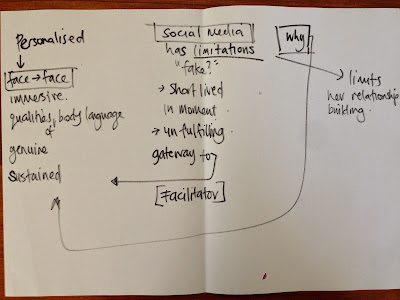 Personalised
face → face
immersive.
qualities, body language
of
genuine
sustained
social media
has limitations
"fake?"
→ short lived
in moment.
→ unfulfilling
gateway to
[Facilitator]
why
limits
new relationship
building.